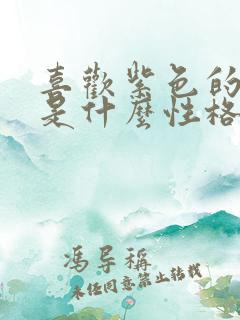 喜歡紫色的
是什麼性格
馮导稱
未經同意禁止轉載